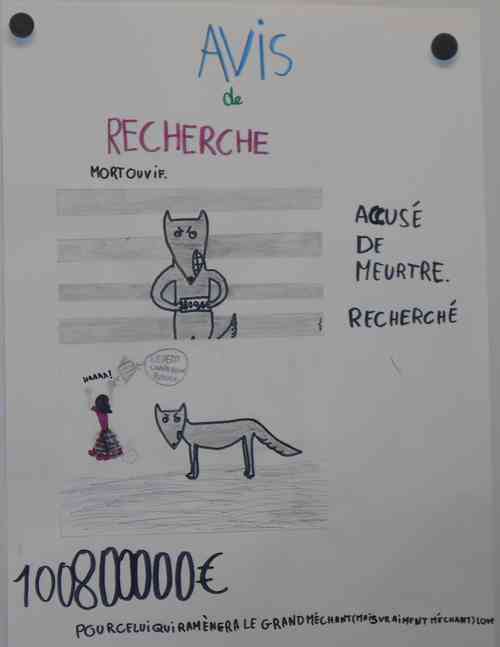 AVIS
de
RECHERCHE
MORT OU VIF.
ACCUSÉ
DE
MEURTRE.
RECHERCHÉ
HAAAA!
LE PETIT
CHAPERON
ROUGE
100800000€
POUR CELUI QUI RAMÈNERA LE GRAND MÉCHANT (MAIS VRAIMENT MÉCHANT) LOUP